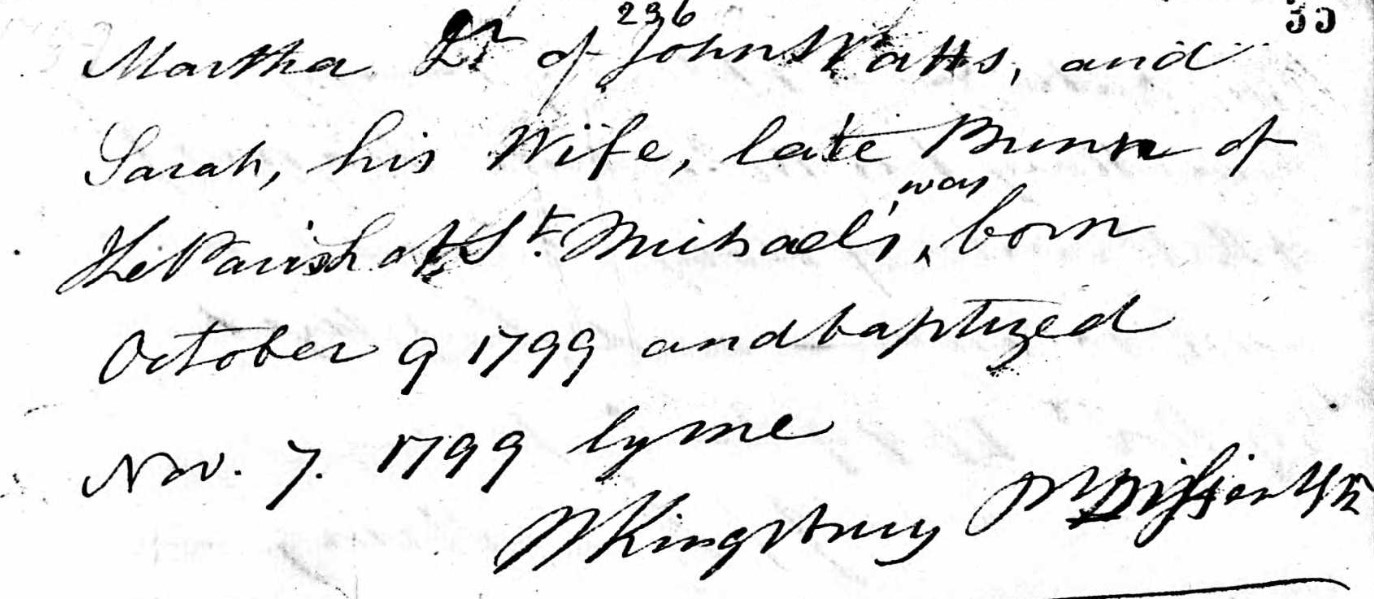 236
35
Martha Dr of John Watts, and
Sarah, his Wife, late Bunn of
the Parish of St. Michael's, was born
October 9 1799 and baptized
Nov. 7. 1799 by me
W Kingsbury